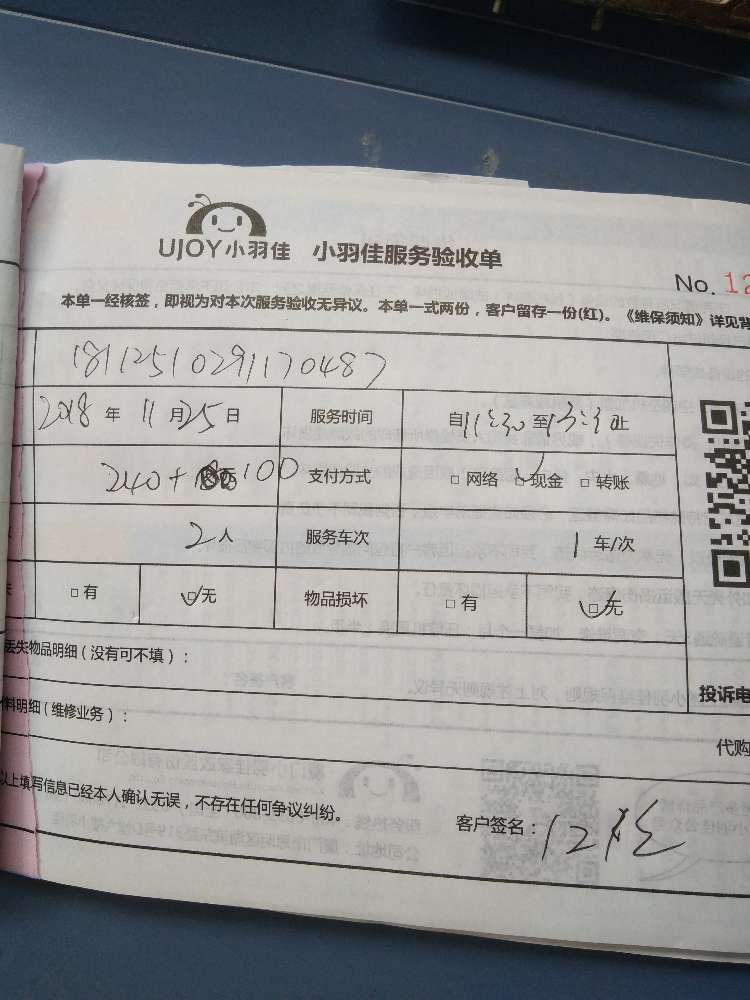 UJOY小羽佳 小羽佳服务验收单
No. 12
本单一经核签，即视为对本次服务验收无异议。本单一式两份，客户留存一份(红)。《维保须知》详见背
18112510291170487
2018 年 11 月 25 日 服务时间 自 11:30 至 13:30 止
240+ 100 支付方式 □ 网络 □ 现金 □ 转账
2 人 服务车次 1 车/次
□ 有 □ 无 物品损坏 □ 有 □ 无
丢失物品明细（没有可不填）：
投诉电
料明细（维修业务）：
代购
以上填写信息已经本人确认无误，不存在任何争议纠纷。
客户签名：